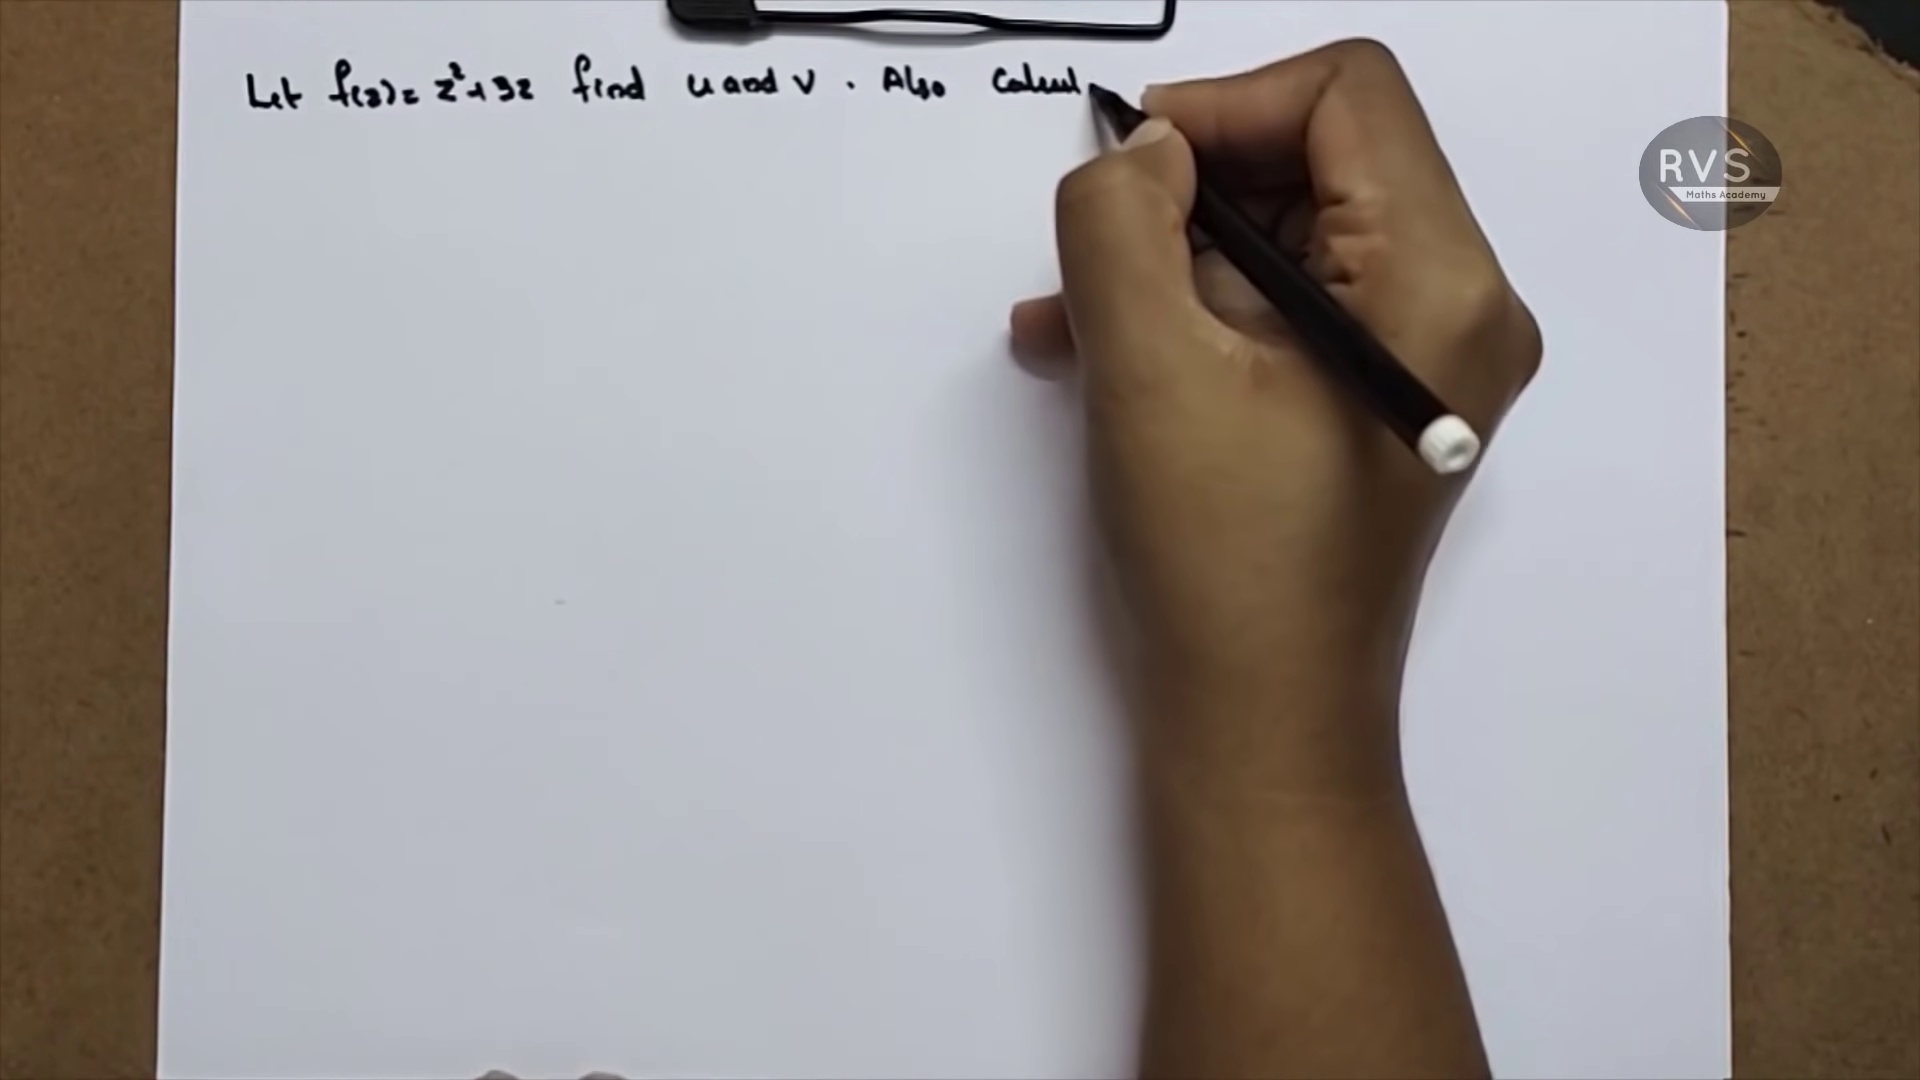 Let f(z) = z² + 3z find u and v . Also Calcul
RVS
Maths Academy